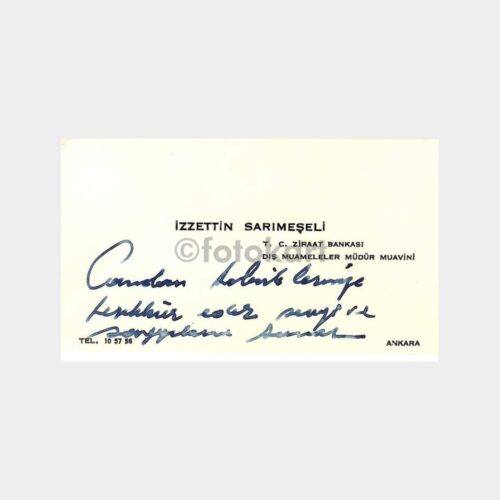 İZZETTİN SARIMEŞELİ
T. C. ZİRAAT BANKASI
©fotokart
DIŞ MUAMELELER MÜDÜR MUAVİNİ
Candan tebriklerinize
teşekkür eder sevgi ve
saygılarımı sunar
TEL. 10 57 56
ANKARA